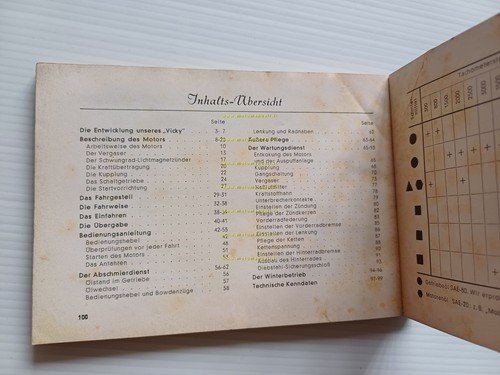 Inhalts-Übersicht
Seite
Die Entwicklung unseres „Vicky" 3- 7
Beschreibung des Motors 8-23
Arbeitsweise des Motors 10
Der Vergaser 13
Der Schwungrad-Lichtmagnetzünder 17
Die Kraftübertragung 20
Die Kupplung
Das Schaltgetriebe 24
Die Startvorrichtung 27
Das Fahrgestell 29-31
Die Fahrweise 32-38
Das Einfahren
Die Übergabe 40-41
Bedienungsanleitung 42-55
Bedienungshebel
Überprüfungen vor jeder Fahrt 48
Starten des Motors 51
Das Anfahren
Der Abschmierdienst 56-62
Ölstand im Getriebe 56
Ölwechsel 57
Bedienungshebel und Bowdenzüge 58
100
Seite
Lenkung und Radnaben 60
Äußere Pflege 63-64
Der Wartungsdienst 65-93
Entkokung des Motors
Kupplung
Gangschaltung
Vergaser
Naßluftfilter
Kraftstoffhahn
Unterbrecherkontakte
Einstellen der Zündung
Pflege der Zündkerzen
Vorderradfederung
Einstellen der Vorderradbremse
Einstellen der Lenkung
Pflege der Ketten
Kettenspannung
Einstellen der Hinterradbremse
Ausbau des Hinterrades
Diebstahl-Sicherungsschloß
Der Winterbetrieb 94-96
Technische Kenndaten 97-99
Tachometerstand
300
600
1500
2000
2500
3000
Getriebeöl SAE-80. Wir
Motorenöl SAE-20: z. B.